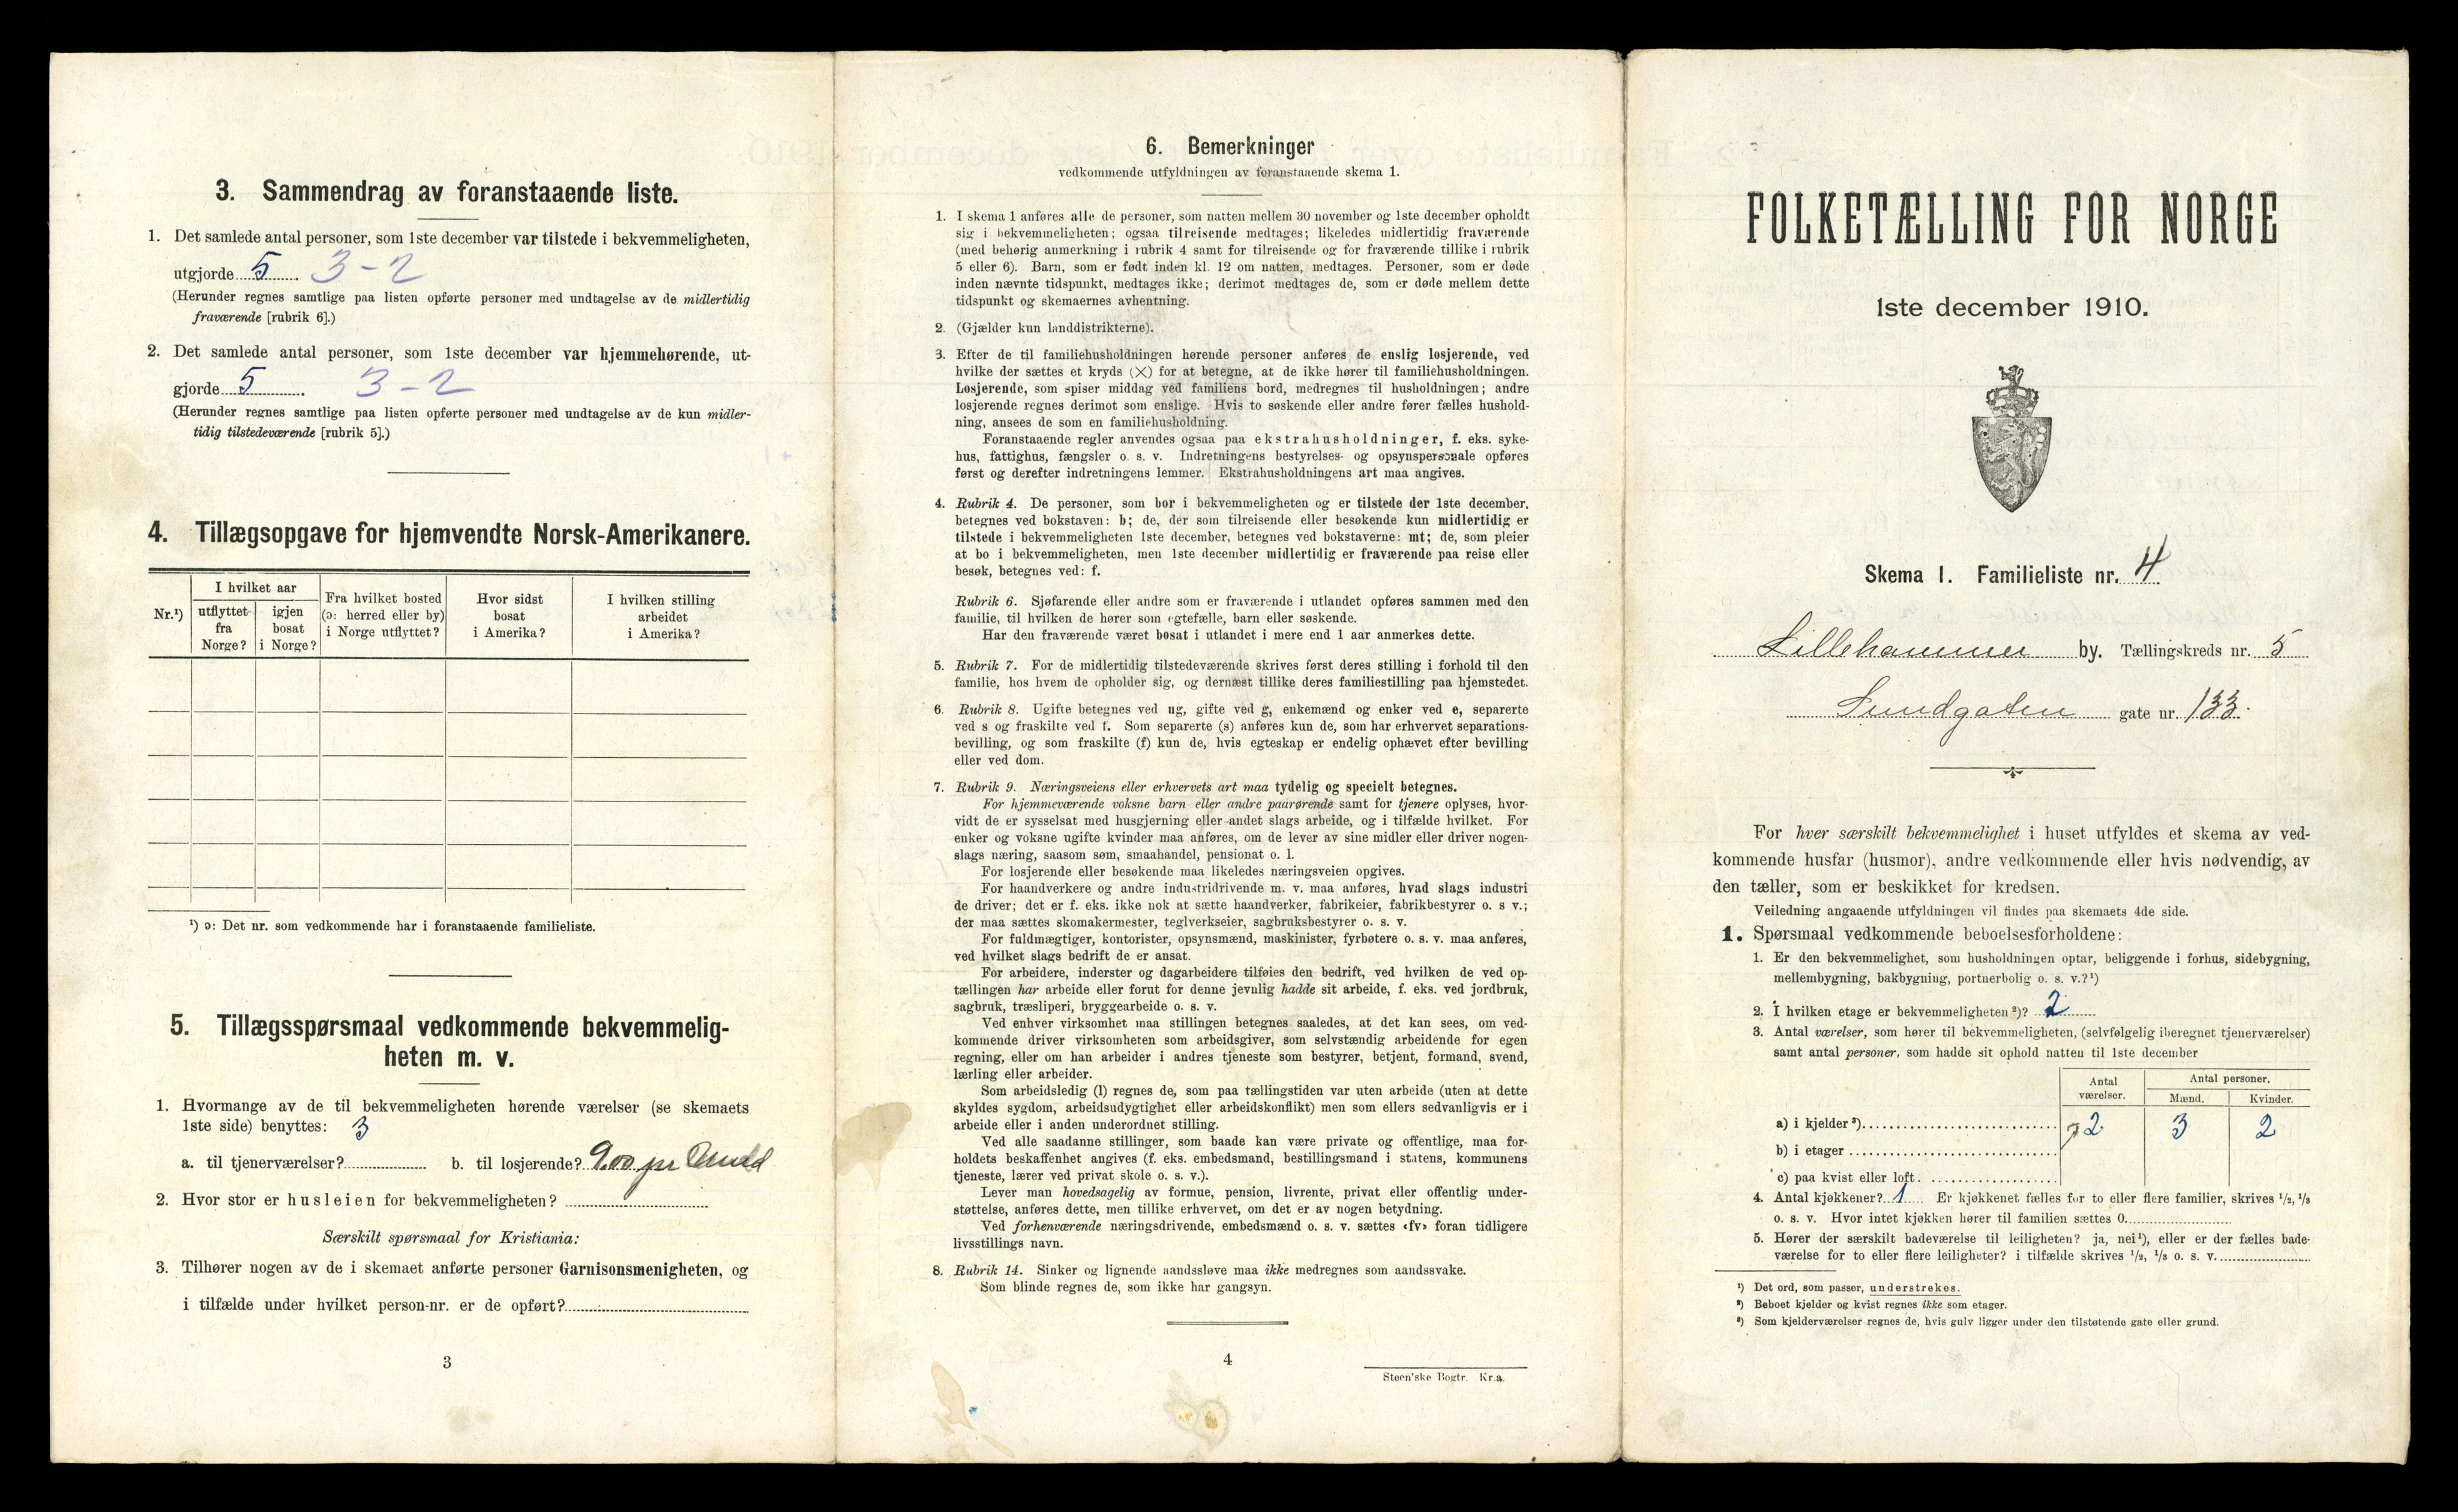 3. Sammendrag av foranstaaende liste.
1. Det samlede antal personer, som 1ste december var tilstede i bekvemmeligheten,
utgjorde 5. 3 - 2
(Herunder regnes samtlige paa listen opførte personer med undtagelse av de midlertidig
fraværende [rubrik 6].)
2. Det samlede antal personer, som 1ste december var hjemmehørende, ut-
gjorde 5. 3 - 2
(Herunder regnes samtlige paa listen opførte personer med undtagelse av de kun midler-
tidig tilstedeværende [rubrik 5].)
4. Tillægsopgave for hjemvendte Norsk-Amerikanere.
Nr.¹)
I hvilket aar
utflyttet fra Norge?
igjen bosat i Norge?
Fra hvilket bosted (ɔ: herred eller by) i Norge utflyttet?
Hvor sidst bosat i Amerika?
I hvilken stilling arbeidet i Amerika?
¹) ɔ: Det nr. som vedkommende har i foranstaaende familieliste.
5. Tillægsspørsmaal vedkommende bekvemmelig-
heten m. v.
1. Hvormange av de til bekvemmeligheten hørende værelser (se skemaets
1ste side) benyttes: 3
a. til tjenerværelser? b. til losjerende? 9.00 pr
2. Hvor stor er husleien for bekvemmeligheten?
Særskilt spørsmaal for Kristiania:
3. Tilhører nogen av de i skemaet anførte personer Garnisonsmenigheten, og
i tilfælde under hvilket person-nr. er de opført?
3
6. Bemerkninger
vedkommende utfyldningen av foranstaaende skema 1.
1. I skema 1 anføres alle de personer, som natten mellem 30 november og 1ste december opholdt
sig i bekvemmeligheten; ogsaa tilreisende medtages; likeledes midlertidig fraværende
(med behørig anmerkning i rubrik 4 samt for tilreisende og for fraværende tillike i rubrik
5 eller 6). Barn, som er født inden kl. 12 om natten, medtages. Personer, som er døde
inden nævnte tidspunkt, medtages ikke; derimot medtages de, som er døde mellem dette
tidspunkt og skemaernes avhentning.
2. (Gjælder kun landdistrikterne).
3. Efter de til familiehusholdningen hørende personer anføres de enslig losjerende, ved
hvilke der sættes et kryds (×) for at betegne, at de ikke hører til familiehusholdningen.
Losjerende, som spiser middag ved familiens bord, medregnes til husholdningen; andre
losjerende regnes derimot som enslige. Hvis to søskende eller andre fører fælles hushold-
ning, ansees de som en familiehusholdning.
Foranstaaende regler anvendes ogsaa paa ekstrahusholdninger, f. eks. syke-
hus, fattighus, fængsler o. s. v. Indretningens bestyrelses- og opsynspersonale opføres
først og derefter indretningens lemmer. Ekstrahusholdningens art maa angives.
4. Rubrik 4. De personer, som bor i bekvemmeligheten og er tilstede der 1ste december,
betegnes ved bokstaven: b; de, der som tilreisende eller besøkende kun midlertidig er
tilstede i bekvemmeligheten 1ste december, betegnes ved bokstaverne: mt; de, som pleier
at bo i bekvemmeligheten, men 1ste december midlertidig er fraværende paa reise eller
besøk, betegnes ved: f.
Rubrik 6. Sjøfarende eller andre som er fraværende i utlandet opføres sammen med den
familie, til hvilken de hører som egtefælle, barn eller søskende.
Har den fraværende været bosat i utlandet i mere end 1 aar anmerkes dette.
5. Rubrik 7. For de midlertidig tilstedeværende skrives først deres stilling i forhold til den
familie, hos hvem de opholder sig, og dernæst tillike deres familiestilling paa hjemstedet.
6. Rubrik 8. Ugifte betegnes ved ug, gifte ved g, enkemænd og enker ved e, separerte
ved s og fraskilte ved f. Som separerte (s) anføres kun de, som har erhvervet separations-
bevilling, og som fraskilte (f) kun de, hvis egteskap er endelig ophævet efter bevilling
eller ved dom.
7. Rubrik 9. Næringsveiens eller erhvervets art maa tydelig og specielt betegnes.
For hjemmeværende voksne barn eller andre paarørende samt for tjenere oplyses, hvor-
vidt de er sysselsat med husgjerning eller andet slags arbeide, og i tilfælde hvilket. For
enker og voksne ugifte kvinder maa anføres, om de lever av sine midler eller driver nogen-
slags næring, saasom søm, smaahandel, pensionat o. l.
For losjerende eller besøkende maa likeledes næringsveien opgives.
For haandverkere og andre industridrivende m. v. maa anføres, hvad slags industri
de driver; det er f. eks. ikke nok at sætte haandverker, fabrikeier, fabrikbestyrer o. s v.;
der maa sættes skomakermester, teglverkseier, sagbruksbestyrer o. s. v.
For fuldmægtiger, kontorister, opsynsmænd, maskinister, fyrbøtere o. s. v. maa anføres,
ved hvilket slags bedrift de er ansat.
For arbeidere, inderster og dagarbeidere tilføies den bedrift, ved hvilken de ved op-
tællingen har arbeide eller forut for denne jevnlig hadde sit arbeide, f. eks. ved jordbruk,
sagbruk, træsliperi, bryggearbeide o. s. v.
Ved enhver virksomhet maa stillingen betegnes saaledes, at det kan sees, om ved-
kommende driver virksomheten som arbeidsgiver, som selvstændig arbeidende for egen
regning, eller om han arbeider i andres tjeneste som bestyrer, betjent, formand, svend,
lærling eller arbeider.
Som arbeidsledig (l) regnes de, som paa tællingstiden var uten arbeide (uten at dette
skyldes sygdom, arbeidsudygtighet eller arbeidskonflikt) men som ellers sedvanligvis er i
arbeide eller i anden underordnet stilling.
Ved alle saadanne stillinger, som baade kan være private og offentlige, maa for-
holdets beskaffenhet angives (f. eks. embedsmand, bestillingsmand i statens, kommunens
tjeneste, lærer ved privat skole o. s. v.).
Lever man hovedsagelig av formue, pension, livrente, privat eller offentlig under-
støttelse, anføres dette, men tillike erhvervet, om det er av nogen betydning.
Ved forhenværende næringsdrivende, embedsmænd o. s. v. sættes «fv» foran tidligere
livsstillings navn.
8. Rubrik 14. Sinker og lignende aandssløve maa ikke medregnes som aandssvake.
Som blinde regnes de, som ikke har gangsyn.
4
Steen'ske Bogtr. Kr.a.
FOLKETÆLLING FOR NORGE
1ste december 1910.
Skema 1. Familieliste nr. 4
Lillehammer by. Tællingskreds nr. 5
Sundgaten gate nr. 133.
For hver særskilt bekvemmelighet i huset utfyldes et skema av ved-
kommende husfar (husmor), andre vedkommende eller hvis nødvendig, av
den tæller, som er beskikket for kredsen.
Veiledning angaaende utfyldningen vil findes paa skemaets 4de side.
1. Spørsmaal vedkommende beboelsesforholdene:
1. Er den bekvemmelighet, som husholdningen optar, beliggende i forhus, sidebygning,
mellembygning, bakbygning, portnerbolig o. s. v.?¹)
2. I hvilken etage er bekvemmeligheten²)? 2
3. Antal værelser, som hører til bekvemmeligheten, (selvfølgelig iberegnet tjenerværelser)
samt antal personer, som hadde sit ophold natten til 1ste december
Antal værelser.
Antal personer.
Mænd. Kvinder.
a) i kjelder³) 2 3 2
b) i etager
c) paa kvist eller loft.
4. Antal kjøkkener? 1 Er kjøkkenet fælles for to eller flere familier, skrives 1/2, 1/3
o. s. v. Hvor intet kjøkken hører til familien sættes 0.
5. Hører der særskilt badeværelse til leiligheten? ja, nei¹), eller er der fælles bade-
værelse for to eller flere leiligheter? i tilfælde skrives 1/2, 1/3 o. s. v.
¹) Det ord, som passer, understrekes.
²) Beboet kjelder og kvist regnes ikke som etager.
³) Som kjelderværelser regnes de, hvis gulv ligger under den tilstøtende gate eller grund.